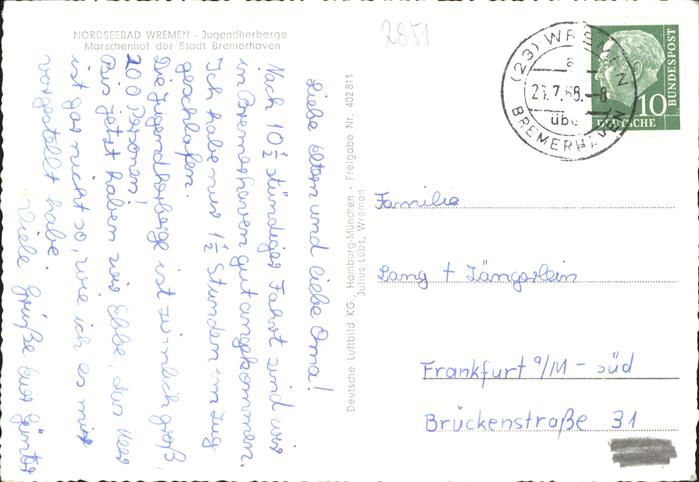 NORDSEEBAD WREMEN - Jugendherberge
Marschenhof der Stadt Bremerhaven
2851
Liebe Eltern und liebe Oma!
Nach 10 ½ stündiger Fahrt sind wir
in Bremerhaven gut angekommen.
Ich habe nur 1 ½ Stunden im Zug
geschlafen.
Die Jugendherberge ist ziemlich groß,
200 Personen!
Bis jetzt haben wir Ebbe, das Meer
ist gar nicht so, wie ich es mir
vorgestellt habe.
Viele Grüße euer Günter
Deutsche Luftbild KG, Hamburg-München - Freigabe Nr. 402811
Julius Lübs, Wremen
(23) WREMEN
a
21.7.58.-8
über
BREMERHAVEN
10
DEUTSCHE
BUNDESPOST
Familie
Lang + Längerlein
Frankfurt a/M - süd
Brückenstraße 31